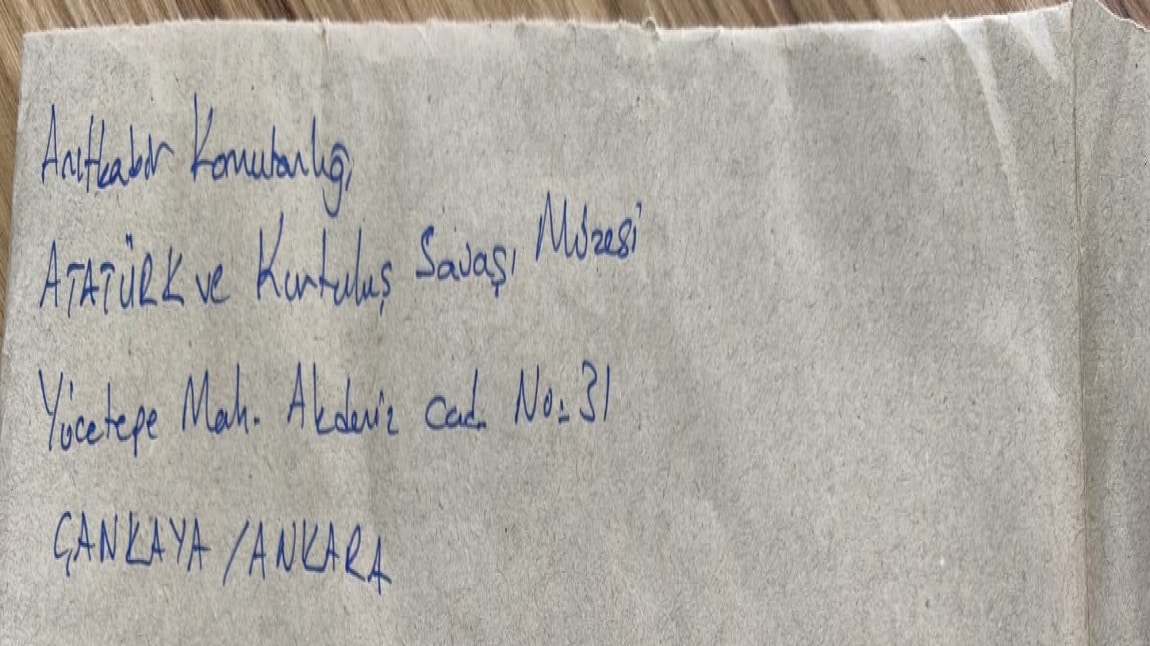 Anıtkabir Komutanlığı
ATATÜRK ve Kurtuluş Savaşı Müzesi
Yücetepe Mah. Akdeniz cad. No: 31
ÇANKAYA / ANKARA